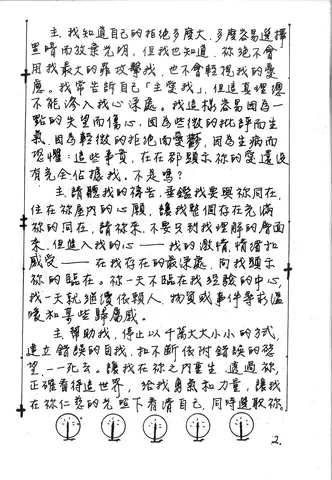 主，我知道自己的拒絕多麼大，多麼容易選擇
黑暗而放棄光明。但我也知道，祢絕不會
用我最大的罪攻擊我，也不會輕視我的憂
慮。我常告訴自己「主愛我」，但這真理還
不能滲入我心深處。我這樣容易因為一
點的失望而傷心，因為些微的批評而生
氣，因為輕微的拒絕而憂鬱，因為生病而
恐懼：這些事實，在在都顯示祢的愛還沒
有完全佔據我。不是嗎？
主，請聽我的禱告，垂鑑我要與祢同在，
住在祢屋內的心願，讓我整個存在充滿
祢的同在。請祢來，不要只到我理解的層面
來，但進入我的心——我的激情，情緒和
感受——在我存在的最深處，向我顯示
祢的臨在。祢一天不臨在我經驗的中心，
我一天就繼續依賴人、物質或事件尋求溫
暖和某些歸屬感。
主，幫助我，停止以千萬大大小小的方式，
建立錯誤的自我，和不斷依附錯誤的慾
望，一一死去。讓我在祢之內重生，透過祢，
正確看待這世界，給我勇氣和力量，讓我
在祢仁慈的光照下看清自己，同時選取祢。
2.